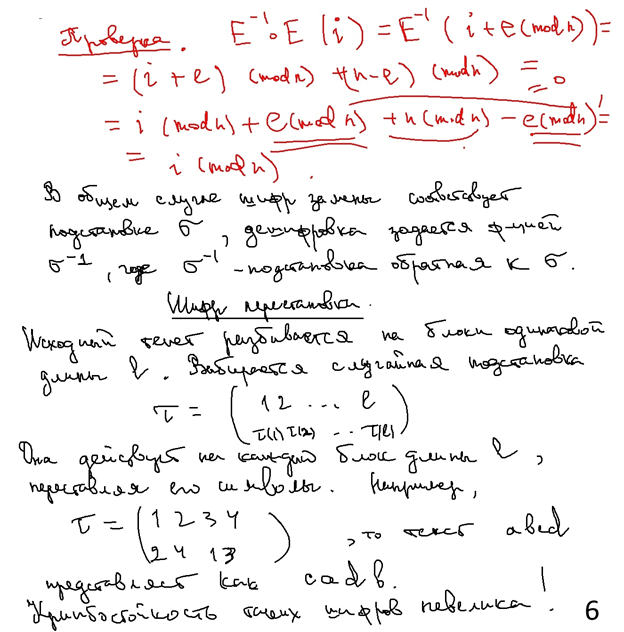 Проверка. E⁻¹∘E (i) = E⁻¹ (i + e (mod n)) =
= (i + e) (mod n) + (n - e) (mod n) =
= 0
= i (mod n) + e (mod n) + n (mod n) - e (mod n) =
= i (mod n).
В общем случае шифр замены соответствует
подстановке σ, дешифровка задается ф-цией
σ⁻¹, где σ⁻¹ - подстановка обратная к σ.
Шифр перестановки.
Исходный текст разбивается на блоки одинаковой
длины l. Выбирается случайная подстановка
τ = ( 1 2 ... l
τ(1) τ(2) ... τ(l) )
Она действует на каждый блок длины l,
переставляя его символы. Например,
τ = ( 1 2 3 4
2 4 1 3 ) , то текст abcd
представляет как cadb.
Криптостойкость таких шифров невелика!
6